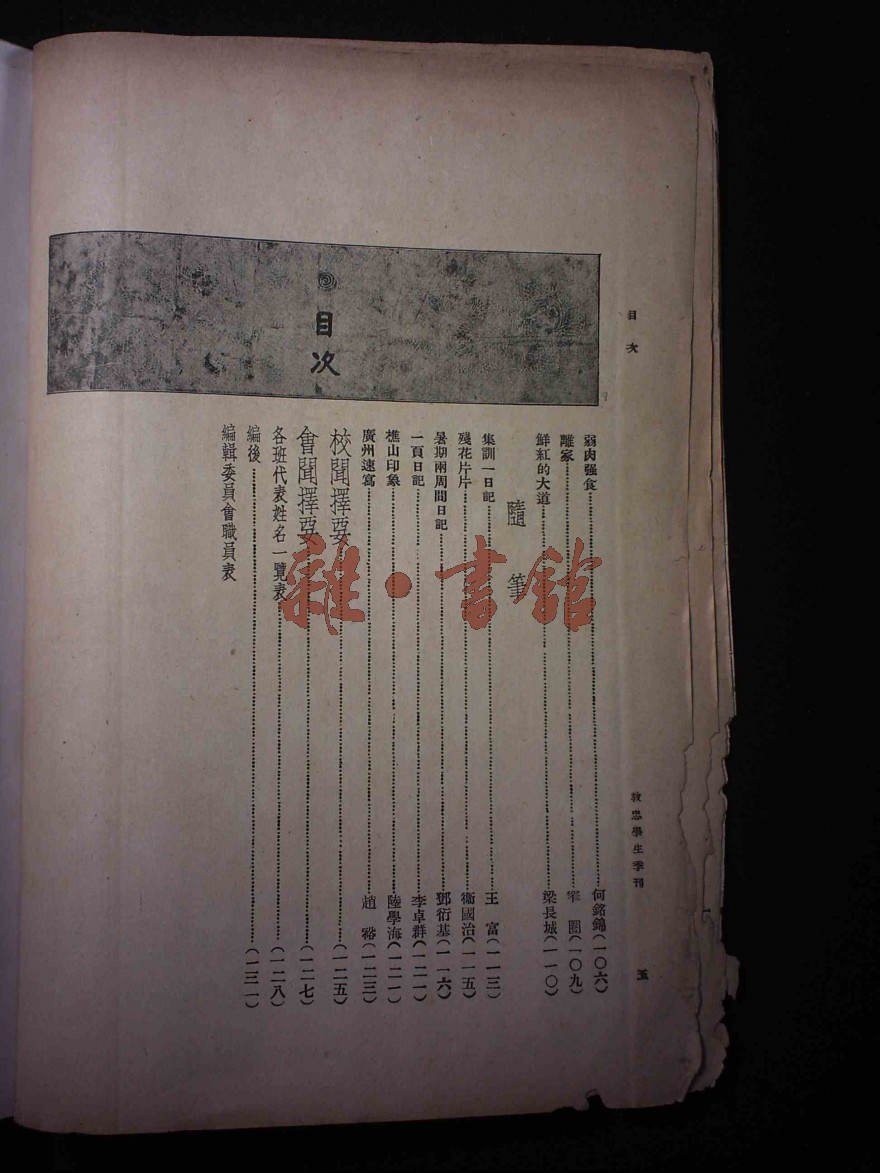 目次
教忠學生季刊
五
目次
弱肉强食……何銘錦(一〇六)
離家……窄圈(一〇九)
鮮紅的大道……梁長城(一一〇)
隨筆
集訓一日記……王富(一一三)
殘花片片……衞國治(一一五)
暑期兩周間日記……鄧衍基(一一六)
一頁日記……李卓群(一二一)
樵山印象……陸學海(一二一)
廣州速寫……趙谿(一二三)
校聞擇要……(一二五)
會聞擇要……(一二七)
各班代表姓名一覽表……(一二八)
編後……(一三一)
編輯委員會職員表
雜·書館